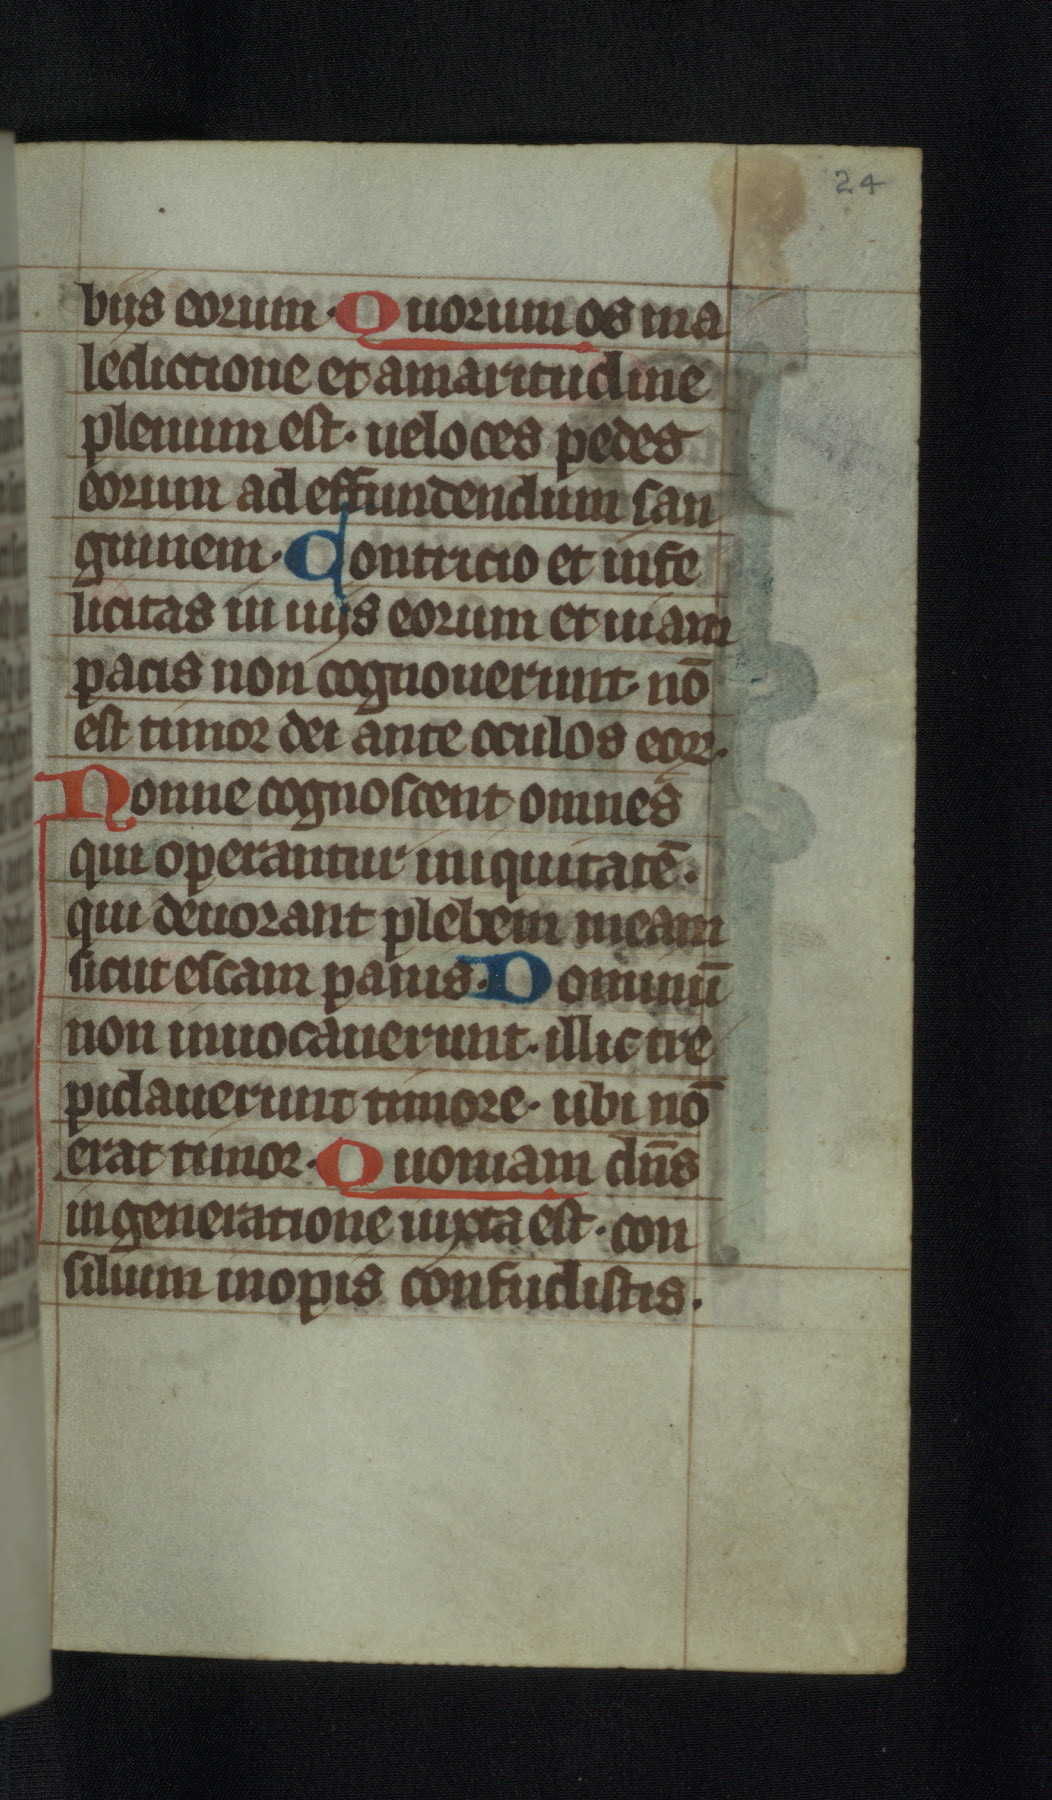 24
bijs eorum. Quorum os ma
ledictione et amaritudine
plenum est. ueloces pedes
eorum ad effundendum san
guinem. Contricio et infe
licitas in uijs eorum et uiam
pacis non cognouerunt. nō
est timor dei ante oculos eorꝝ.
Nonne cognoscent omnes
qui operantur iniquitatē.
qui deuorant plebem meam
sicut escam panis. Dominū
non inuocauerunt. illic tre
pidauerunt timore. ubi nō
erat timor. Quoniam dn̄s
in generatione iuxta est. con
silium inopis confudistis.